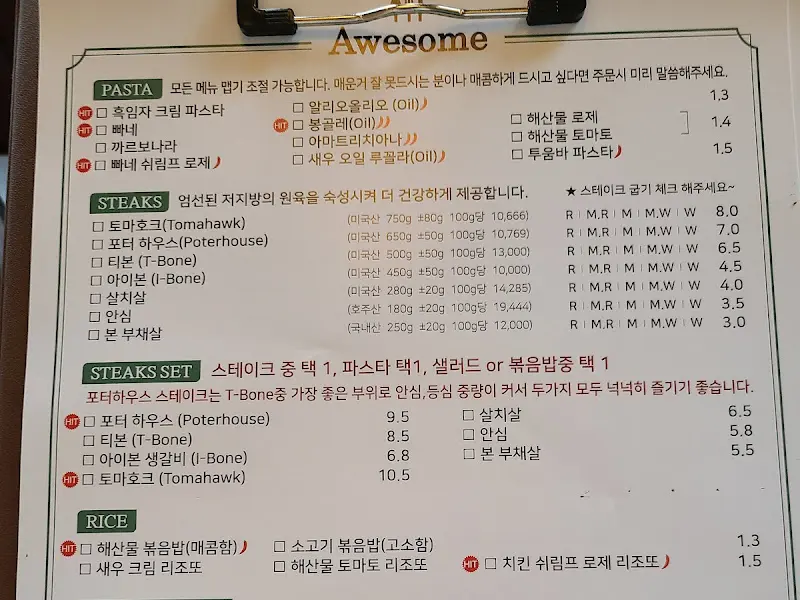 Awesome
PASTA 모든 메뉴 맵기 조절 가능합니다. 매운거 잘 못드시는 분이나 매콤하게 드시고 싶다면 주문시 미리 말씀해주세요.
1.3
HIT □ 흑임자 크림 파스타 □ 알리오올리오 (Oil)
HIT □ 빠네 HIT □ 봉골레(Oil) □ 해산물 로제 1.4
□ 까르보나라 □ 아마트리치아나 □ 해산물 토마토
HIT □ 빠네 쉬림프 로제 □ 새우 오일 루꼴라(Oil) □ 투움바 파스타 1.5
STEAKS 엄선된 저지방의 원육을 숙성시켜 더 건강하게 제공합니다. ★ 스테이크 굽기 체크 해주세요~
□ 토마호크(Tomahawk) (미국산 750g ±80g 100g당 10,666) R | M.R | M | M.W | W 8.0
□ 포터 하우스(Poterhouse) (미국산 650g ±50g 100g당 10,769) R | M.R | M | M.W | W 7.0
□ 티본 (T-Bone) (미국산 500g ±50g 100g당 13,000) R | M.R | M | M.W | W 6.5
□ 아이본 (I-Bone) (미국산 450g ±50g 100g당 10,000) R | M.R | M | M.W | W 4.5
□ 살치살 (미국산 280g ±20g 100g당 14,285) R | M.R | M | M.W | W 4.0
□ 안심 (호주산 180g ±20g 100g당 19,444) R | M.R | M | M.W | W 3.5
□ 본 부채살 (국내산 250g ±20g 100g당 12,000) R | M.R | M | M.W | W 3.0
STEAKS SET 스테이크 중 택 1, 파스타 택1, 샐러드 or 볶음밥중 택 1
포터하우스 스테이크는 T-Bone중 가장 좋은 부위로 안심,등심 중량이 커서 두가지 모두 넉넉히 즐기기 좋습니다.
HIT □ 포터 하우스 (Poterhouse) 9.5 □ 살치살 6.5
□ 티본 (T-Bone) 8.5 □ 안심 5.8
□ 아이본 생갈비 (I-Bone) 6.8 □ 본 부채살 5.5
HIT □ 토마호크 (Tomahawk) 10.5
RICE
HIT □ 해산물 볶음밥(매콤함) □ 소고기 볶음밥(고소함) 1.3
□ 새우 크림 리조또 □ 해산물 토마토 리조또 HIT □ 치킨 쉬림프 로제 리조또 1.5